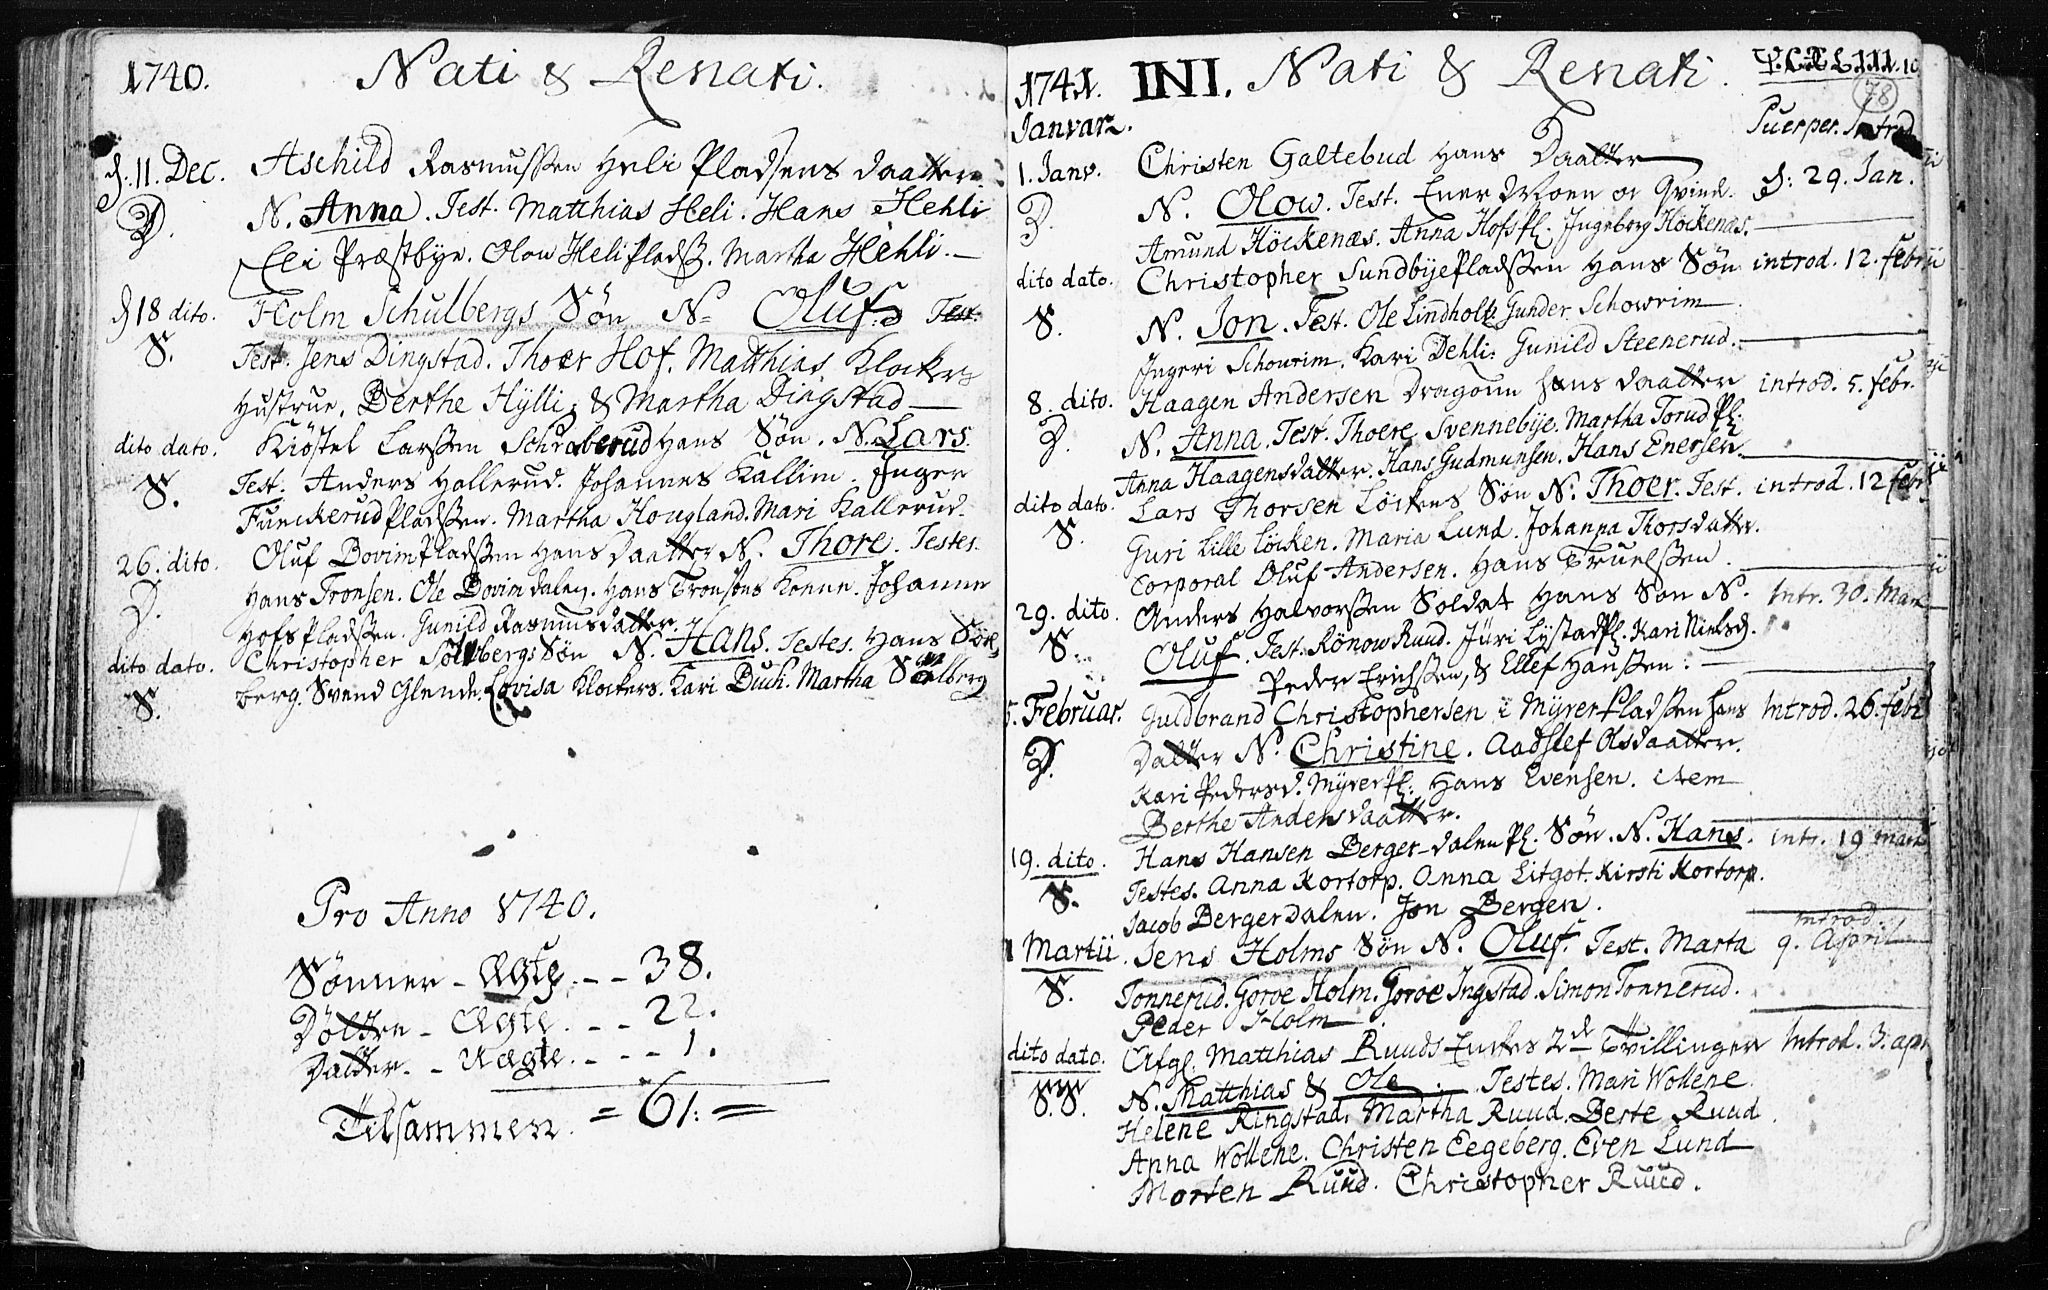 1740. Nati & Renati.
d. 11. Dec. Aschild Rasmussen Heli Pladsens Daatter
D. N. Anna. Test. Matthias Heli. Hans Hehli
Eli Præstbye. Olow Heli Pladss. Martha Hehli.
d 18 dito. Holm Schulbergs Søn N= Oluf. Test.
S. Test. Jens Dingstad. Thoer Hof. Matthias Klockers
Hustrue. Berthe Hylli & Martha Dingstad
dito dato. Kiøstel Larssen Schraberud Hans Søn. N. Lars
S. Test. Anders Hallerud. Johannes Kallim. Inger
Funckerud Pladssen. Martha Hougland. Mari Kallerud.
26. dito. Oluf Bovim Pladssen Hans Daatter N. Thore. Testes.
D. Hans Tronsen. Ole Bovimdalen. Hans Tronsens Konne. Johanne
Hofs Pladssen. Gunild Rasmusdatter.
dito dato. Christopher Solbergs Søn N. Hans. Testes. Hans Söl,
S. berg. Svend Glende. Lovisa Klockers. Kari Duch. Martha Sölberg
Pro Anno 1740.
Sönner - Ægte. - - 38.
Döttre - Ægte. - - 22.
Datter. - Uægte. - - - 1.
Tilsammen. = 61. =
1741. INI. Nati & Renati.
78
Januar. Puerper. Introd
1. Janv. Christen Galtebud Hans Daatter
D. N. Olow. Test. Ener Moen oc Qvind. d: 29. Jan.
Amund Höckenæs. Anna Hofs Pl. Ingeborg Hockenæs.
dito dato. Christopher Sundbye Pladssen Hans Søn introd. 12. Febr
S. N. Jon. Test. Ole Lindholt Gunder Schowrim
Ingeri Schowrim. Kari Dehli. Gunild Steenerud.
8. dito. Haagen Andersen Dragoun Hans Daatter introd. 5. Febr.
D. N. Anna. Test. Thoere Svennebye. Martha Torud Pl.
Anna Haagensdatter. Hans Gudmunsen. Hans Enersen.
dito dato. Lars Thorsen Löckens Søn N. Thoer. Test. introd. 12 Febr
S. Guri Lille Löcken. Maria Lund. Johanna Thorsdatter.
Corporal Oluf Andersen. Hans Truelssen.
29. dito. Anders Halvorssen Soldat Hans Søn N. Intr. 30. Mar
S. Oluf. Test. Rönow Ruud. Jüri Lystad Pl. Kari Nielsd.
Peder Erichssen, & Ellef Hanssen.
5. Februar. Guldbrand Christophersen i Myrer Pladssen Hans Introd. 26. Febr
D. Datter N. Christine. Aadslef Olsdaatter.
Kari Pedersd. Myrer Pl. Hans Evensen. item
Berthe Andersdaatter.
19. dito. Hans Hansen Berger-dalen Pl. Søn. N. Hans. intr. 19 Marti
S. Testes. Anna Kortorp. Anna Litgot. Kirsti Kortorp.
Jacob Bergerdalen. Jon Bergen.
1 Martii. Jens Holms Søn N. Oluf. Test. Marta Introd. 9. April
S. Tonnerud. Goroe Holm. Goroe Ingstad. Simon Tonnerud.
Peder Holm.
dito dato. Afgl. Matthias Ruuds Enckes 2de Tvillinger Introd. 3. apr
S.S. N. Matthias & Ole. Testes. Mari Wollene
Helene Ringstad. Martha Ruud. Berte Ruud
Anna Wollene. Christen Eegeberg. Even Lund
Morten Ruud. Christopher Ruud.